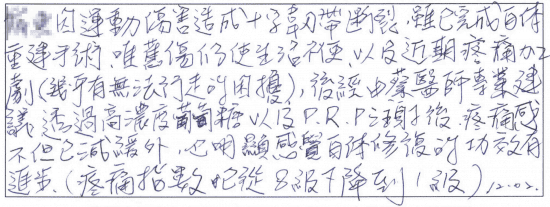 因運動傷害造成十字韌帶斷裂,雖已完成自体
重建手術,唯舊傷仍使生活不便,以及近期疼痛加
劇(幾乎有無法行走的困擾),後經由蔡醫師專業建
議透過高濃度葡萄糖以及P.R.P注射後,疼痛感
不但已減緩外,也明顯感覺自体修復的功效有
進步.(疼痛指數 從8級下降到1級)12.02.